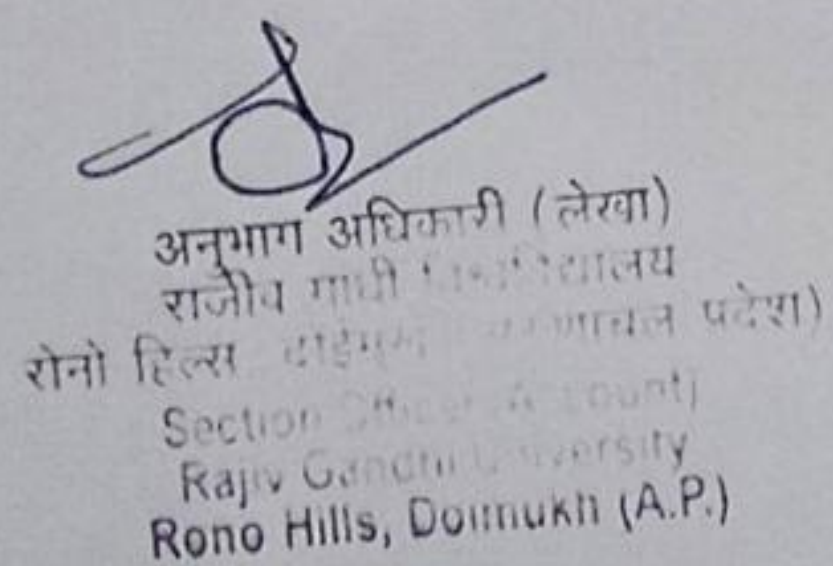 अनुभाग अधिकारी (लेखा)
राजीव गांधी विश्वविद्यालय
रोनो हिल्स दोईमुख (अरुणाचल प्रदेश)
Section Officer (Account)
Rajiv Gandhi University
Rono Hills, Doimukh (A.P.)